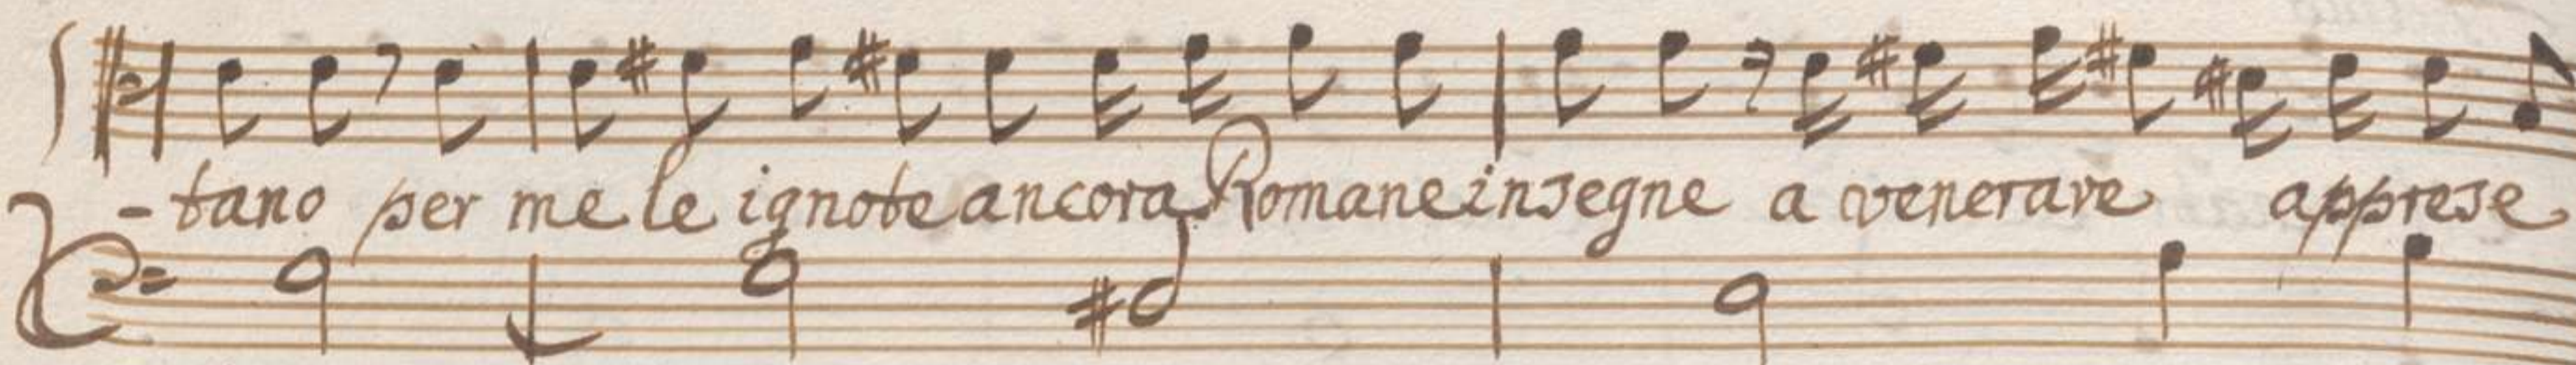 -tano per me le ignote ancora Romane insegne a venerare apprese